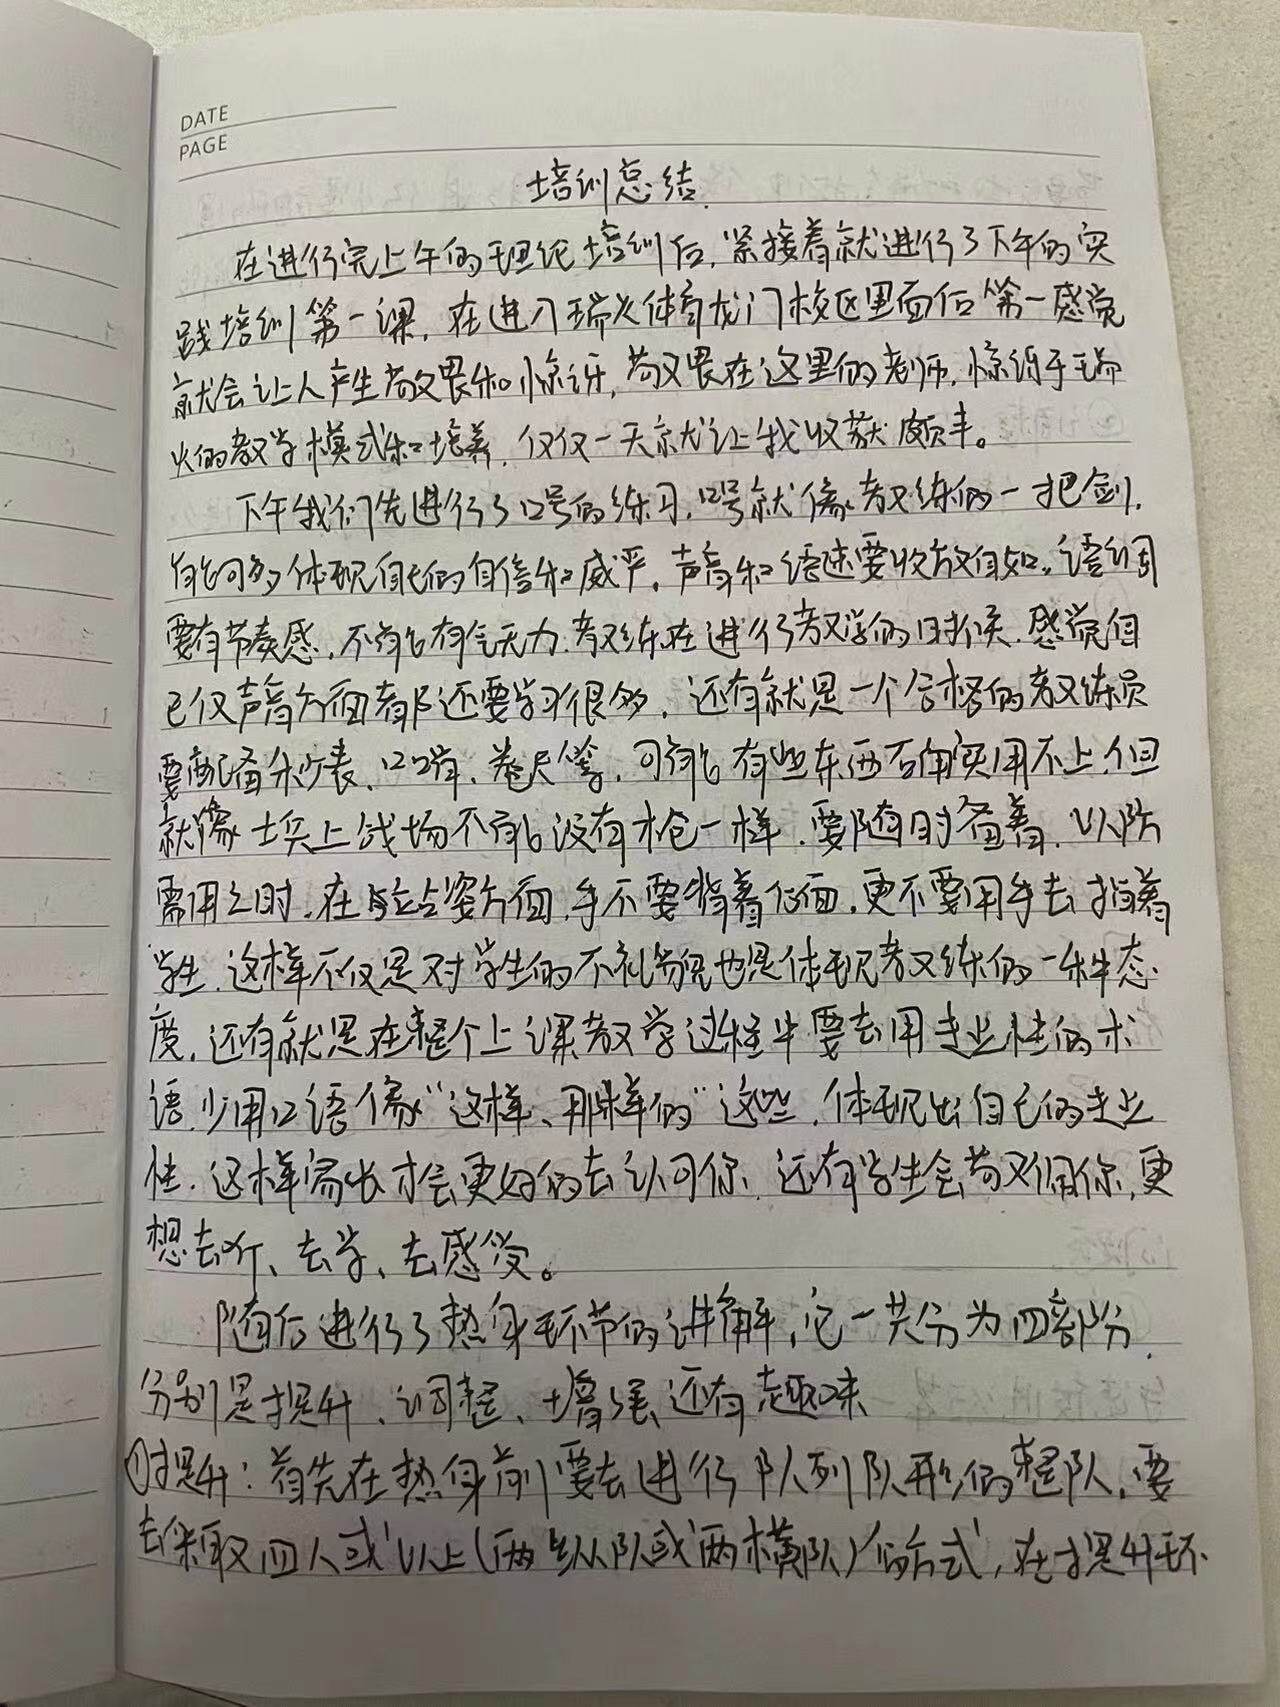 DATE
PAGE
培训总结
在进行完上午的理论培训后,紧接着就进行了下午的实
践培训第一课,在进入瑞火体育龙门校区里面后第一感觉
就会让人产生敬畏和惊讶,敬畏在这里的老师,惊讶于瑞
火的教学模式和培养,仅仅一天就让我收获颇丰。
下午我们先进行了口号的练习,口号就像教练的一把剑,
能够体现自己的自信和威严,声音和语速要收放自如。语调
要有节奏感,不能有气无力.教练在进行教学的时候.感觉自
己仅声音方面都还要学习很多,还有就是一个合格的教练员
要配备秒表、口哨、卷尺等,可能有些东西确实用不上,但
就像士兵上战场不能没有枪一样.要随时备着,以防
需用之时,在站姿方面,手不要背着后面,更不要用手去指着
学生,这样不仅是对学生的不礼貌也是体现教练的一种态
度,还有就是在整个上课教学过程中要去用专业性的术
语,少用口语像“这样、那样的”这些,体现出自己的专业
性,这样家长才会更好的去认可你,还有学生会敬佩你,更
想去听、去学、去感受。
随后进行了热身环节的讲解,它一共分为四部分,
分别是提升、调整、增强、还有趣味
①提升:首先在热身前要去进行队列队形的整队,要
去采取四人或以上(两纵队或两横队)的方式,在提升环